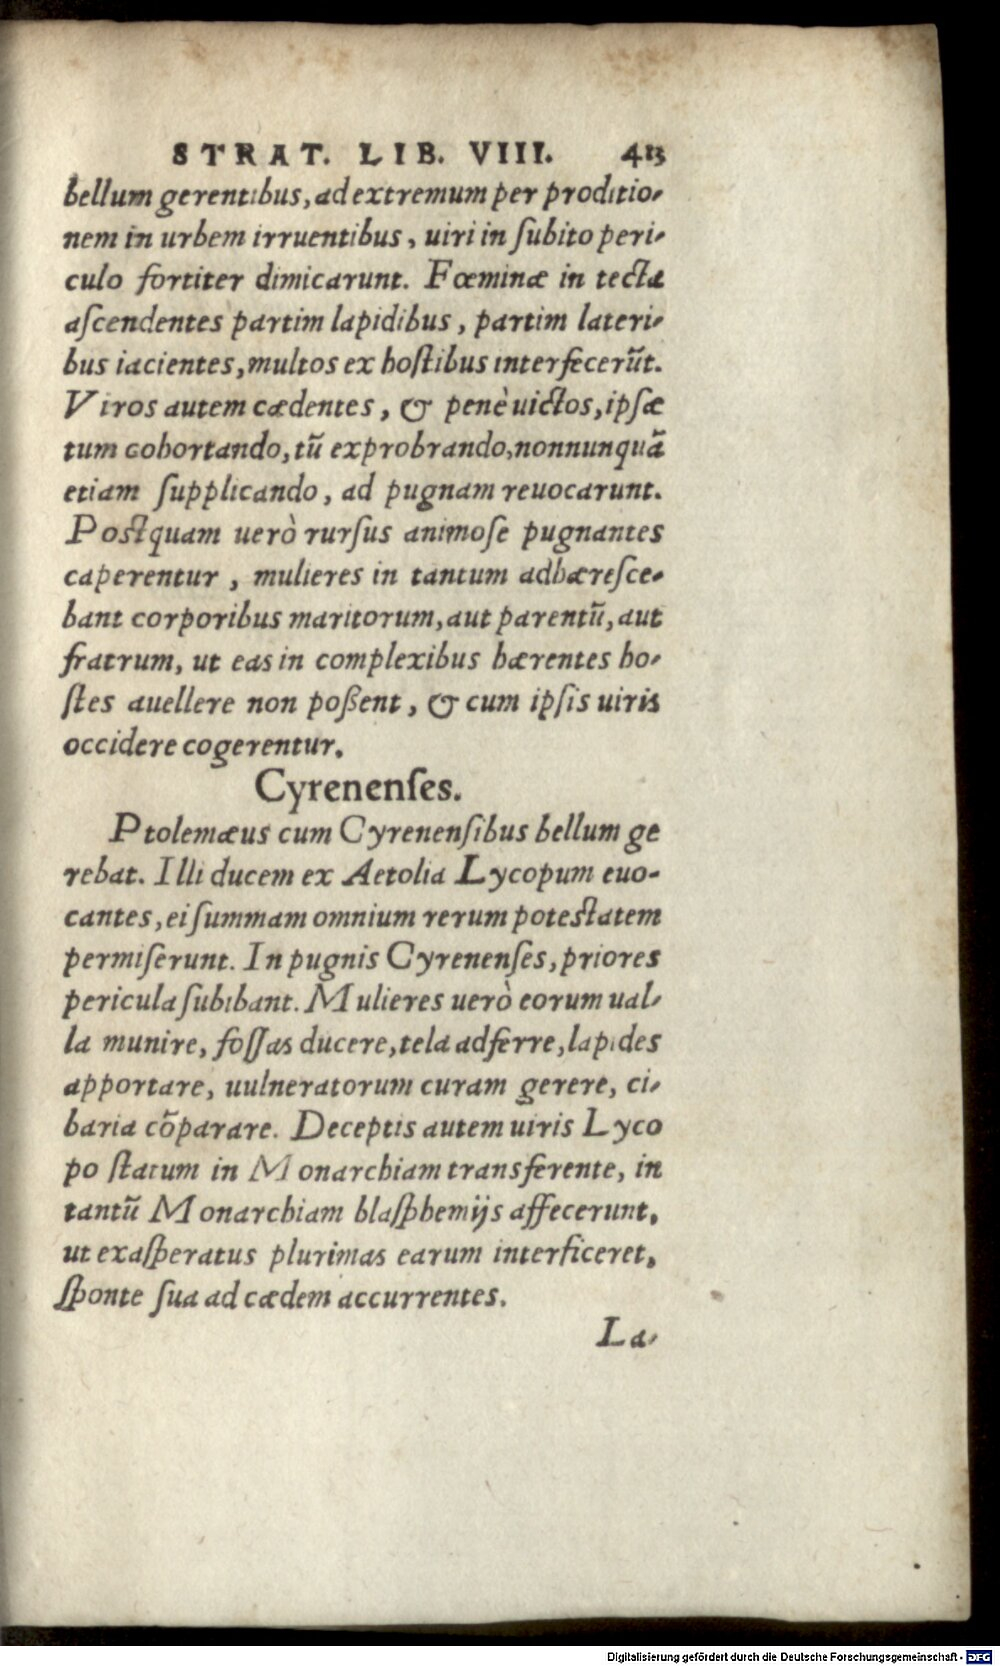 STRAT. LIB. VIII. 413
bellum gerentibus, ad extremum per proditio-
nem in urbem irruentibus, uiri in ſubito peri-
culo fortiter dimicarunt. Fœminæ in tecta
aſcendentes partim lapidibus, partim lateri-
bus iacientes, multos ex hoſtibus interfecerũt.
Viros autem cædentes, & penè uictos, ipſæ
tum cohortando, tũ exprobrando, nonnunquã
etiam ſupplicando, ad pugnam reuocarunt.
Poſtquam uerò rurſus animoſe pugnantes
caperentur, mulieres in tantum adhæreſce-
bant corporibus maritorum, aut parentũ, aut
fratrum, ut eas in complexibus hærentes ho-
ſtes auellere non poßent, & cum ipſis uiris
occidere cogerentur.
Cyrenenſes.
Ptolemæus cum Cyrenenſibus bellum ge
rebat. Illi ducem ex Aetolia Lycopum euo-
cantes, ei ſummam omnium rerum poteſtatem
permiſerunt. In pugnis Cyrenenſes, priores
pericula ſubibant. Mulieres uerò eorum ual-
la munire, foſſas ducere, tela adferre, lapides
apportare, uulneratorum curam gerere, ci-
baria cõparare. Deceptis autem uiris Lyco
po ſtatum in Monarchiam transferente, in
tantũ Monarchiam blaſphemijs affecerunt,
ut exaſperatus plurimas earum interficeret,
ſponte ſua ad cædem accurrentes.
La-
Digitalisierung gefördert durch die Deutsche Forschungsgemeinschaft - DFG